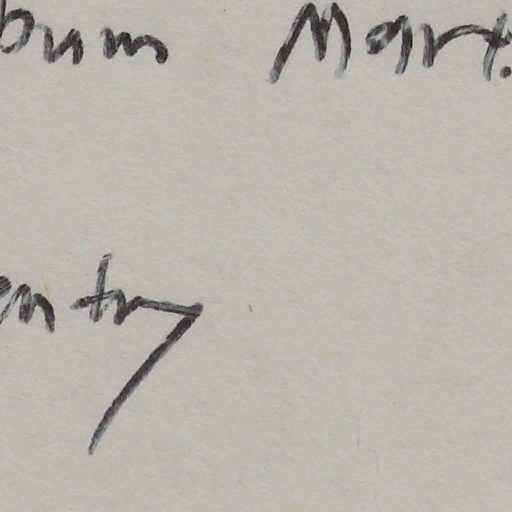 bum Mart.
entry